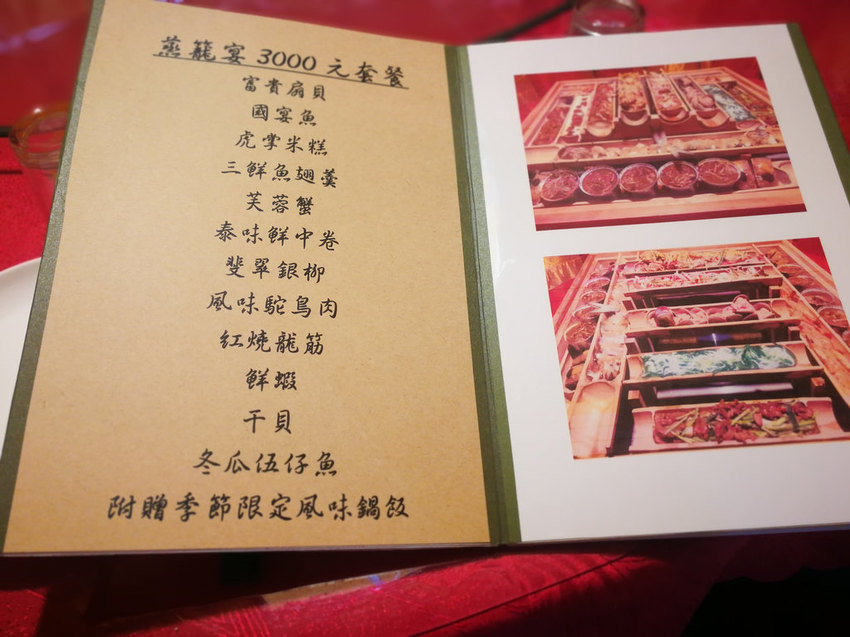 蒸籠宴3000元套餐
富貴扇貝
國宴魚
虎掌米糕
三鮮魚翅羹
芙蓉蟹
泰味鮮中卷
斐翠銀柳
風味駝鳥肉
紅燒龍筋
鮮蝦
干貝
冬瓜伍仔魚
附贈季節限定風味鍋飯